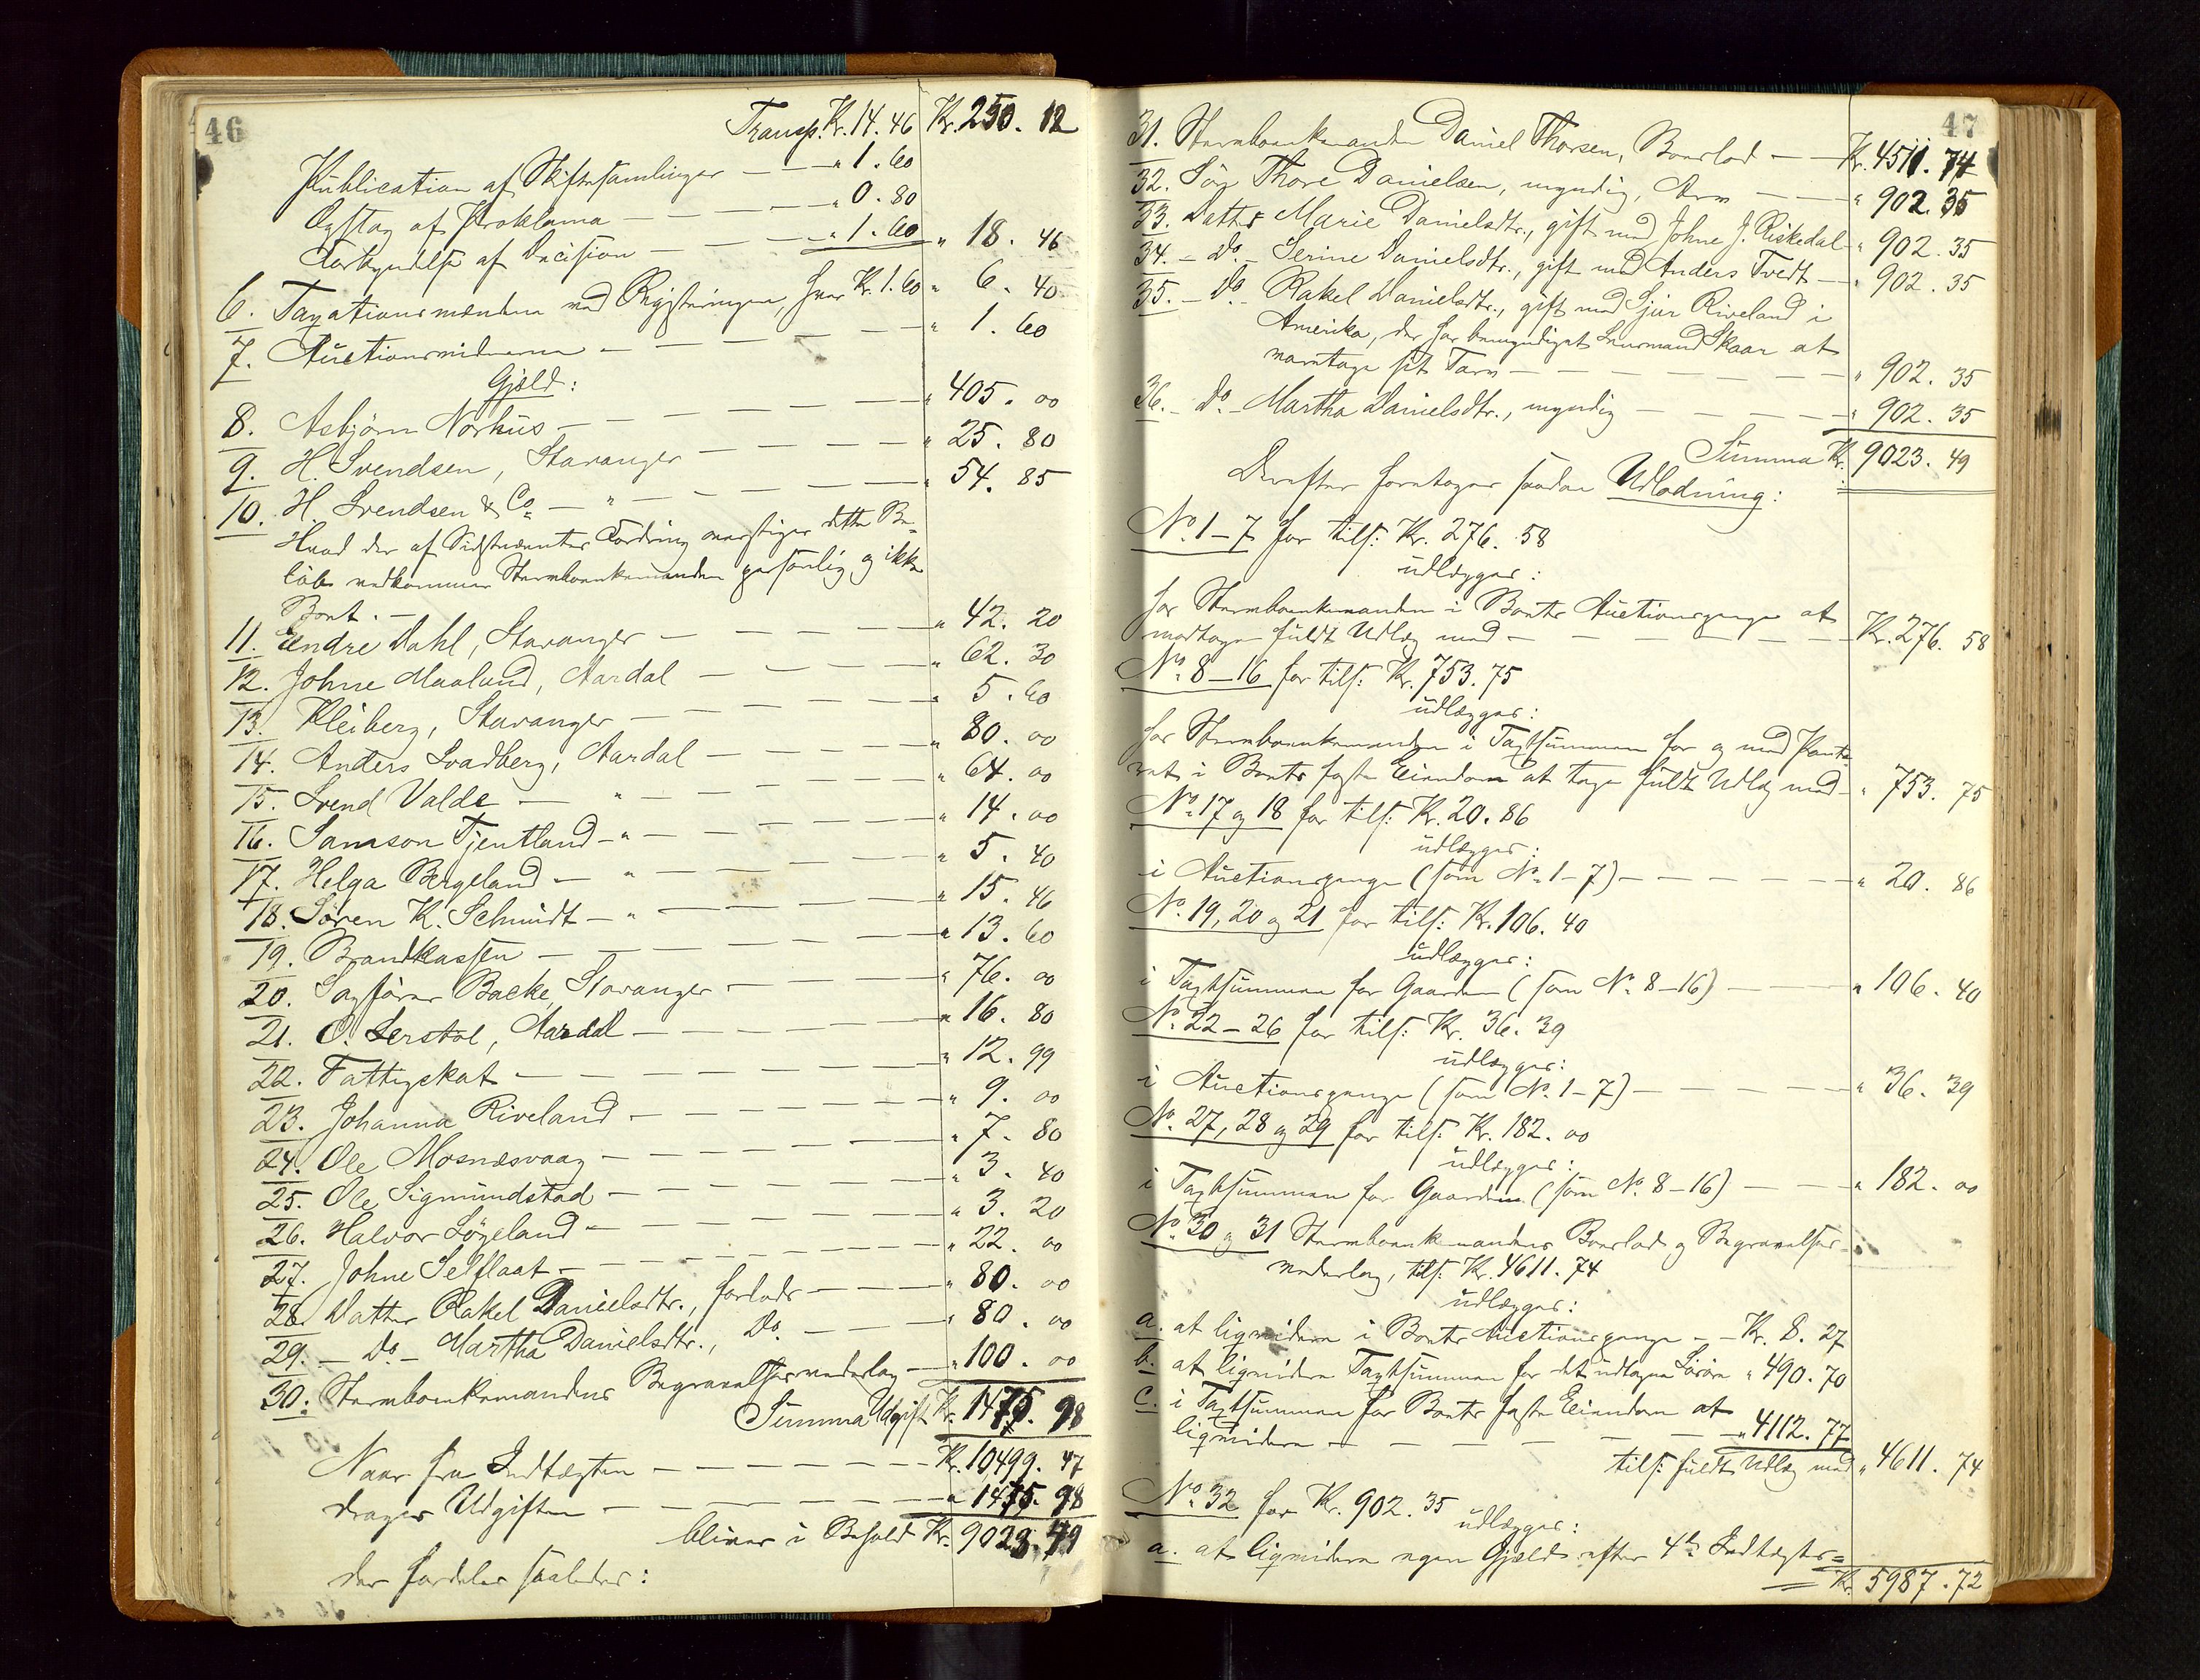 46
Transp. Kr. 14.46 Kr. 250. 12
Publication af Skiftesamlinger — — " 1.60
Opslag af Proklama — — — — " 0.80
Forkyndelse af Decision — — — " 1.60 " 18. 46
6. Taxationsmændene ved Registreringen, hver Kr. 1.60 " 6. 40
7. Auctionsvidnerne — — — — " 1. 60
Gjæld:
8. Asbjörn Norhus — — — — " 405. 00
9. H. Svendsen, Stavanger — — — " 25. 80
10. H. Svendsen & Co — " — — — " 54. 85
Hvad der af Sidstnævntes Fordring overstiger dette Be-
löb vedkommer Stervboenkemanden personlig og ikke
Boet. —
11. Endre Dahl, Stavanger — — — " 42. 20
12. Johne Maaland, Aardal — — — " 62. 30
13. Kleiberg, Stavanger — — — " 5. 60
14. Anders Svadberg, Aardal — — — " 80. 00
15. Svend Valde — " — — — " 64. 00
16. Samson Tjentland — " — — — " 14. 00
17. Helga Bergeland — " — — — " 5. 40
18. Sören K. Schmidt — " — — — " 15. 46
19. Brandkassen — — — — " 13. 60
20. Sagförer Backe, Stavanger — — — " 76. 00
21. O. Lerstøl, Aardal — — — " 16. 80
22. Fattigskat — — — — " 12. 99
23. Johanna Riveland — — — " 9. 00
24. Ole Mosnæsvaag — — — " 7. 80
25. Ole Sigmundstad — — — " 3. 40
26. Halvor Lögeland — — — " 3. 20
27. Johne Selflaat — — — " 22. 00
28. Datter Rakel Danielsdtr., forlods — — " 80. 00
29. — Do. — Martha Danielsdtr., Do. — — " 80. 00
30. Stervboenkemandens Begravelsesvederlag — " 100. 00
Summa Udgift Kr. 1475. 98
Naar fra Indtægten — — — — Kr. 10499. 47
drages Udgiften — — — — " 1475. 98
bliver i Behold Kr. 9023. 49
der fordeles saaledes:
47
31. Stervboenkemanden Daniel Thorsen, Boeslod — — Kr. 4511. 74
32. Sön Thore Danielsen, myndig, Arv — — " 902. 35
33. Datter Marie Danielsdtr., gift med Johne J. Riskedal — " 902. 35
34. — Do. — Serine Danielsdtr., gift med Anders Tvedt — " 902. 35
35. — Do. — Rakel Danielsdtr., gift med Sjur Riveland i
Amerika, der har bemyndiget Lensmand Skaar at
varetage sit Tarv — — — — " 902. 35
36. — Do. — Martha Danielsdtr., myndig — — — " 902. 35
Summa Kr. 9023. 49
Derefter foretages saadan Udlodning:
No. 1–7 for tils: Kr. 276. 58
udlægges:
hos Stervboenkemanden i Boets Auctionspenge at
modtage fuldt Udlæg med — — — — Kr. 276. 58
No. 8–16 for tils: Kr. 753. 75
udlægges:
hos Stervboenkemanden i Taxtsummen for og med Pante-
ret i Boets faste Eiendom at tage fuldt Udlæg med — " 753. 75
No. 17 og 18 for tils: Kr. 20. 86
udlægges:
i Auctionspenge (som No. 1–7) — — — — " 20. 86
No. 19, 20 og 21 for tils: Kr. 106. 40
udlægges:
i Taxtsummen for Gaarden (som No. 8–16) — — " 106. 40
No. 22–26 for tils: Kr. 36. 39
udlægges:
i Auctionspenge (som No. 1–7) — — — — " 36. 39
No. 27, 28 og 29 for tils: Kr. 182. 00
udlægges:
i Taxtsummen for Gaarden (som No. 8–16) — — " 182. 00
No. 30 og 31 Stervboenkemandens Boeslod og Begravelses-
vederlag, tils: Kr. 4611. 74
udlægges:
a. at liqvidere i Boets Auctionspenge — — Kr. 8. 27
b. at liqvidere Taxtsummen for det udtagne Lösöre " 490. 70
c. i Taxtsummen for Boets faste Eiendom at
liqvidere — — — — " 4112. 77
tils: fuldt Udlæg med " 4611. 74
No. 32 for Kr. 902. 35
udlægges:
a. at liqvidere egen Gjæld efter 4de Indtægts-
Kr. 5987. 72